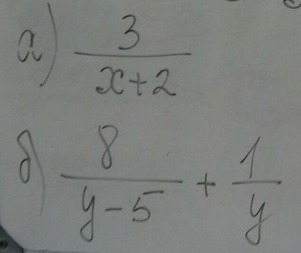 а) 3/(x+2)
б) 8/(y-5) + 1/y